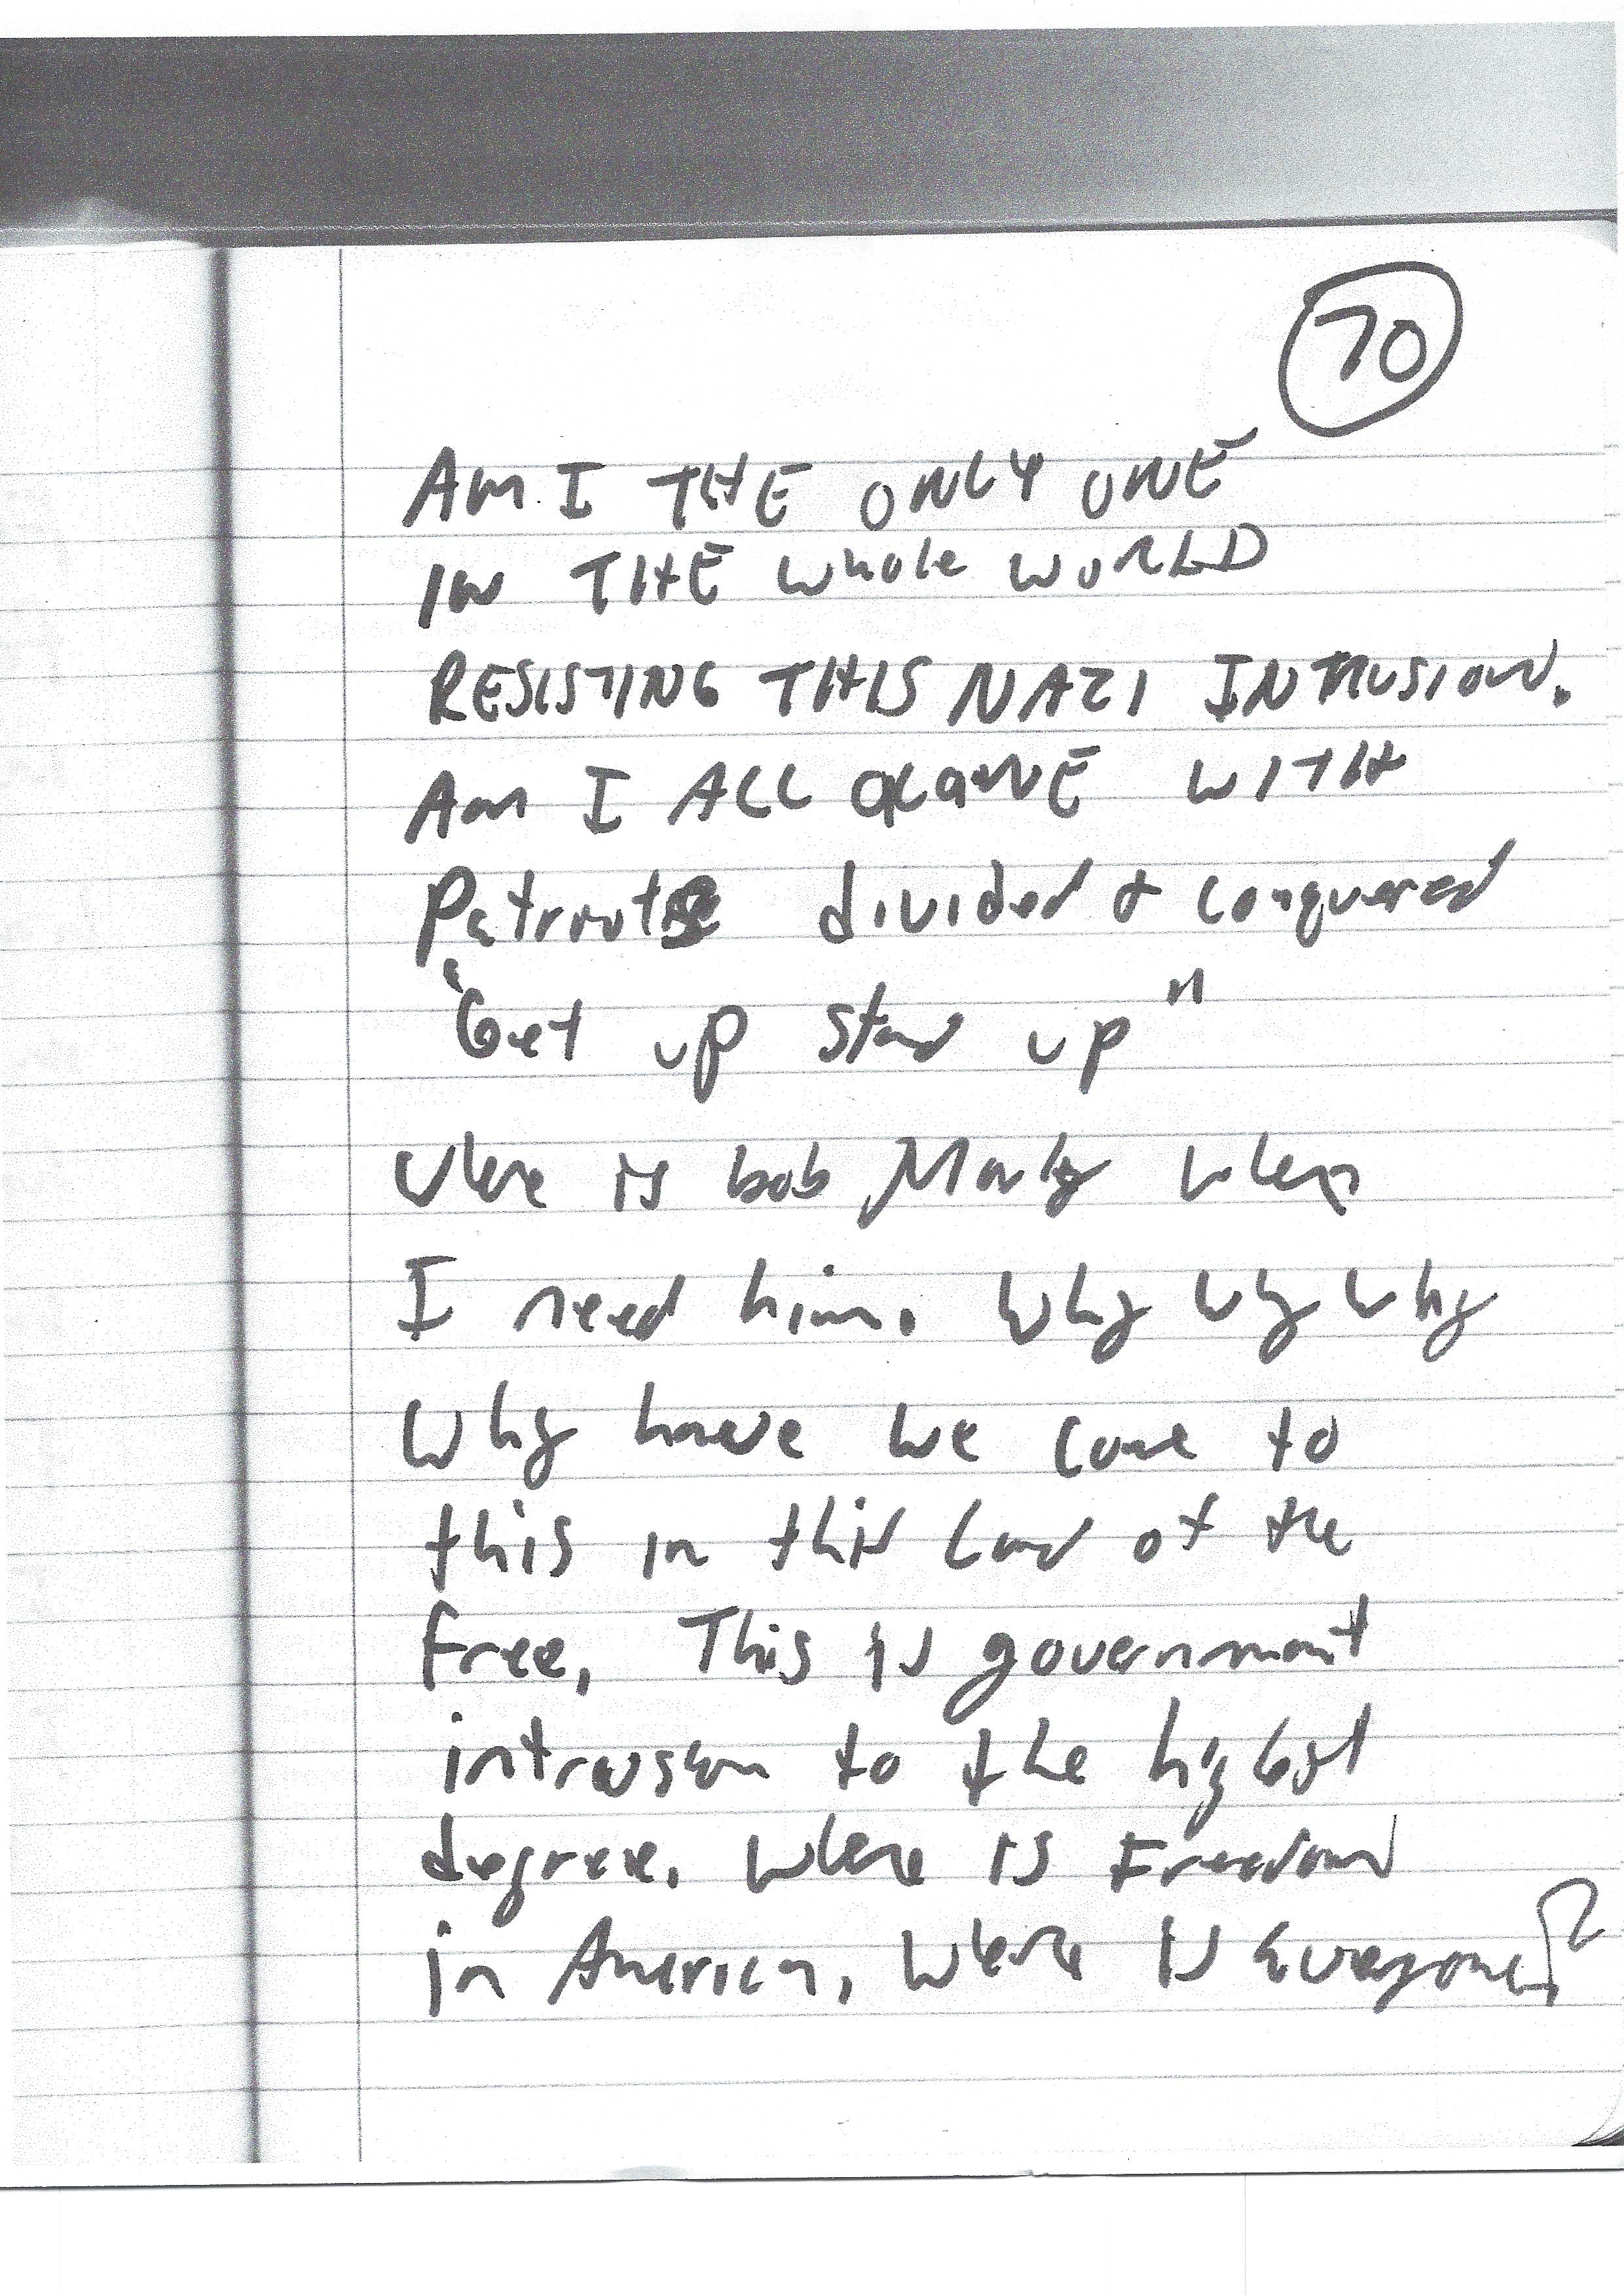 70
Am I THE ONLY ONE
IN THE whole WORLD
RESISTING THIS NAZI INTRUSION.
Am I ALL alONE WITH
Patriots divided & conquered
"Get up stand up"
Where is bob Marley when
I need him. Why Why Why
Why have we come to
this in this land of the
Free, This is government
intrusion to the highest
degree. Where is Freedom
in America, Where is Everyone?